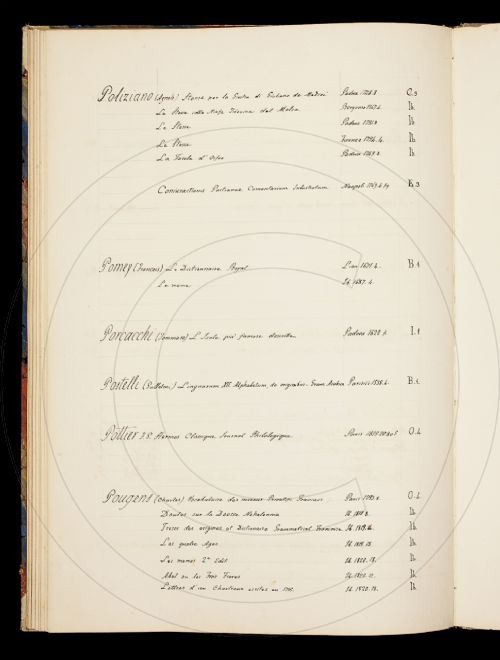 Poliziano (Agnolo) Stanze per la Giostra di Giuliano de Medici Padova 1728.8 O.3
Le Stanze colla Ninfa Tiberina del Molza Bergamo 1747.4. Ib
Le Stanze Padova 1751.8 Ib
Le Stanze Firenze 1794.4. Ib
La Favola d'Orfeo Padova 1749.8. Ib
Coniurationis Pactianae Commentarium Napoli 1769.4 K.3
Pomey (François) Le Dictionnaire Royal Lion 1671.4. B.1
Le meme Id. 1687.4.
Porcacchi (Tommaso) L'Isole più famose descritte Padova 1620.f. I.1
Postelli (Guillelmi) Linguarum XII. Alphabetum, de originibus. Gram. Arabica Parisiis 1538.4. B.1
Pottier F.S. Hermes Classique Journal Philologique Paris O.2
Pougens (Charles) Vocabulaire des nouveaux Privatifs Francais Paris 1793.8. O.2
Doutes sur la Deesse Nehalennia Id. 1810.8. Ib
Tresor des origines et Dictionnaire Grammatical Id. 1819.4. Ib
Les quatre Ages Id. 1819.18. Ib
Les memes 2.e Edit Id. 1820.18. Ib
Abel ou les Trois Freres Id. 1820.12. Ib
Lettres d'un Chartreux ecrites en 1755. Id. 1820.18. Ib